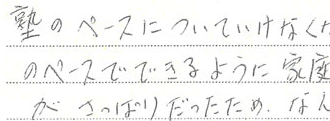 塾のペースについていけなくな
のペースでできるように家庭
がさっぱりだったため、なん